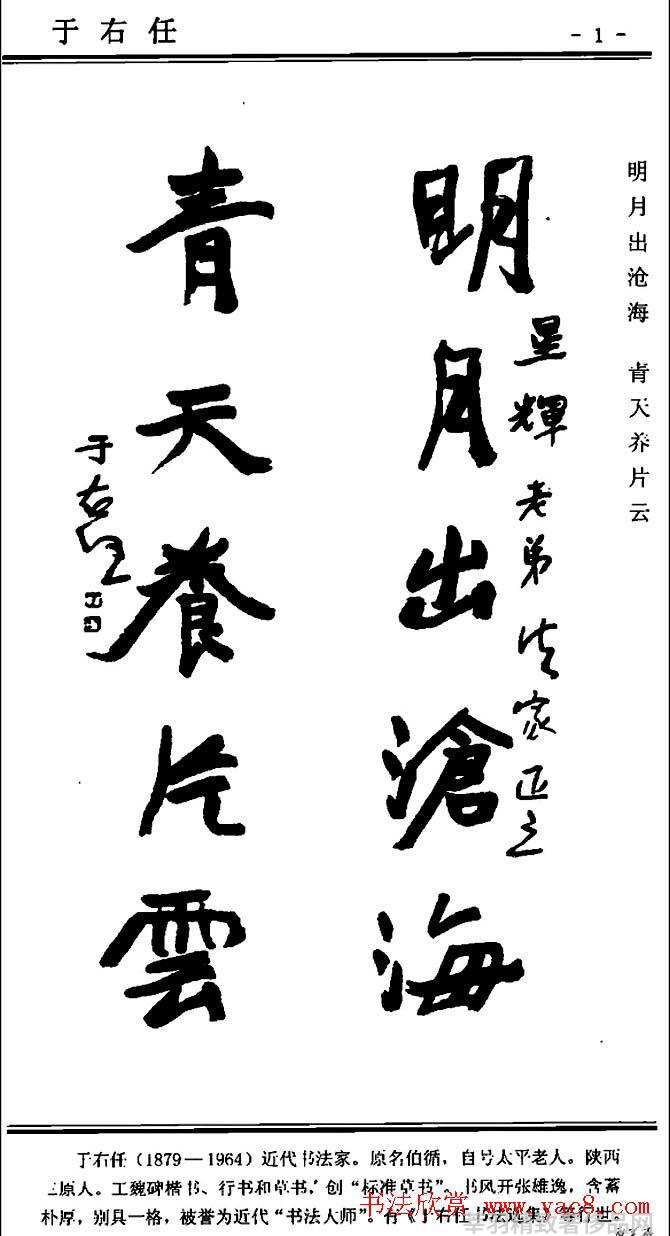 于右任
- 1 -
明月出沧海 青天养片云
明月出滄海
星輝老弟法家正之
青天養片雲
于右任
于右任(1879—1964)近代书法家。原名伯循,自号太平老人。陕西
三原人。工魏碑楷书、行书和草书,创“标准草书”,书风开张雄逸,含蓄
朴厚,别具一格,被誉为近代“书法大师”。有《于右任书法选集》等行世。
书法欣赏 www.yac8.com